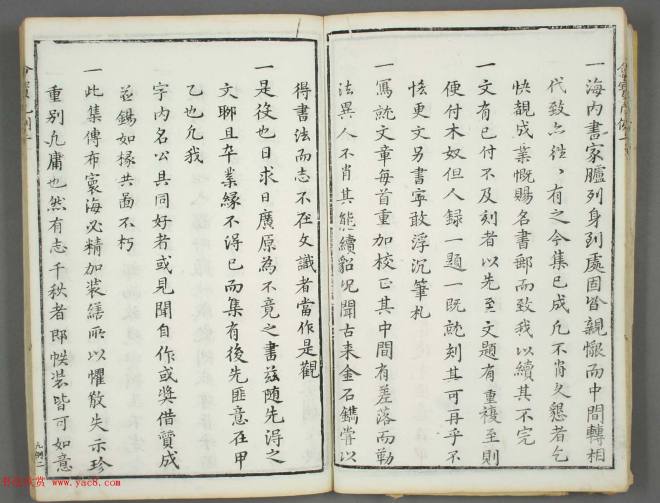 一海內書家臚列身到處固皆親懷而中間轉相
代致亦往往有之今集已成凡不肖久懇者乞
快覩成業慨賜名書郵而致我以續其不完
一文有已付不及刻者以先至文題有重複至則
便付木奴但人録一題一既就刻其可再乎不
恡更文另書寧敢浮沉筆札
一寫就文章每首重加校正其中間有差落而勒
法異人不肖其能續貂况聞古來金石鐫嘗以
得書法而志不在文識者當作是觀
一是役也日求日廣原為不竟之書茲隨先得之
文聊且卒業緣不得已而集有後先匪意在甲
乙也凡我
字内名公共同好者或見聞自作或奬借贊成
並錫如椽共啚不朽
一此集傳布寰海必精加裝繕所以懼散失示珍
重别凡庸也然有志千秋者即帙裝皆可如意
凡例二
www.yac8.com